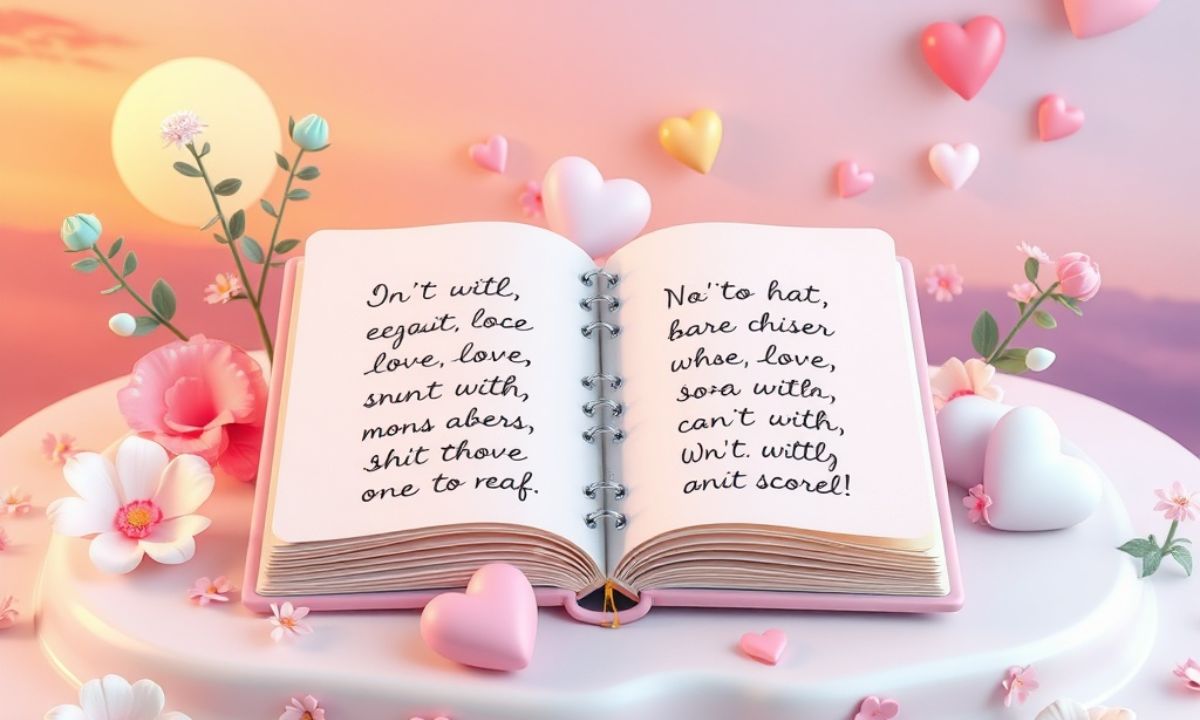 In't witl,
eegauit, loce
love, love,
snınt with,
mons abers,
shit thove
one to reaf.
No''to hat,
bare chiser
whse, love,
with,
can't with,
Wn't. wittly
anit scorel!